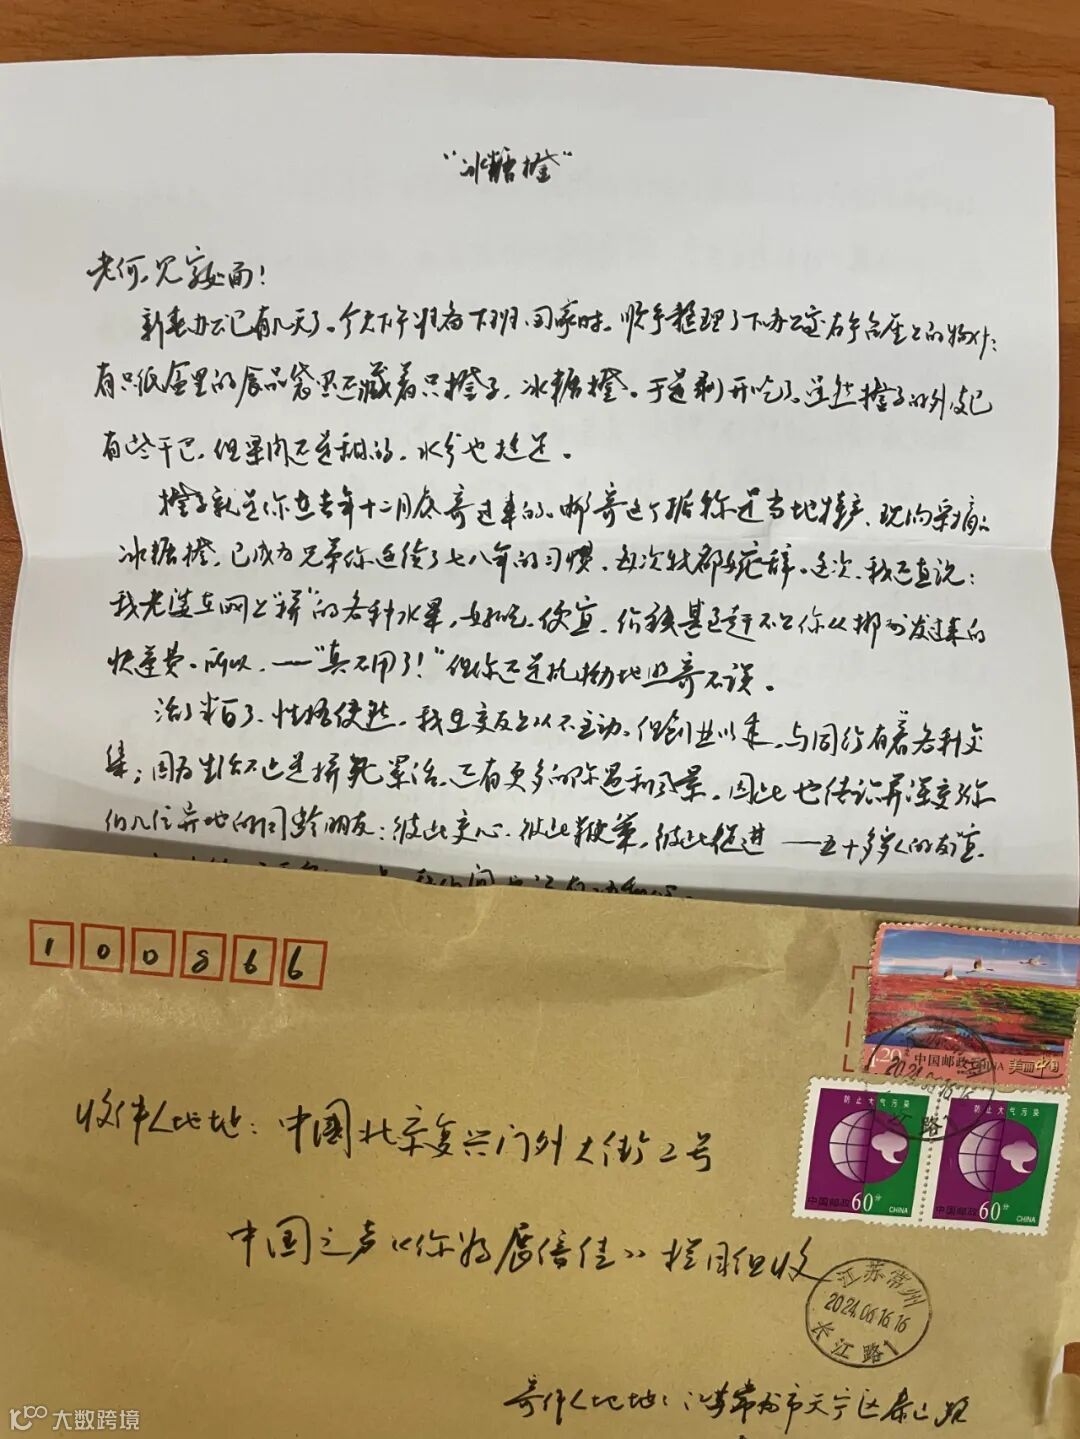 “冰糖橙”
老何，见字如面！
新春办公已有几天了。今天下午准备下班回家时，顺手整理了下办公室右手台座上的物什：
有只纸盒里的食品袋里还藏着只橙子，冰糖橙。于是剥开吃了。虽然橙子的外皮已
有些干巴，但果肉还是甜的，水分也挺足。
橙子就是你在去年十二月底寄过来的。邮寄这个据称是当地特产、现均采摘的
冰糖橙，已成为兄弟你连续了七八年的习惯，每次我都婉辞。这次，我还直说：
我老婆在网上“拼”的各种水果，好吃、便宜，价钱甚至赶不上你从郴州发过来的
快递费。所以，——“真不用了！”但你还是执拗地照寄不误。
活了半百了，性格使然，我在交友上从不主动。但创业以来，与同行有着各种交
集；因为生活不止是拼死累活，还有更多的际遇和风景。因此也结识并深交了你
们几位异地的同龄朋友：彼此交心、彼此鞭策，彼此促进——五十多岁人的友谊，
100866
1.20 中国邮政 CHINA 美丽中国
2024.06.16.16
长江路
防止大气污染
防止大气污染
中国邮政 60分 CHINA
中国邮政 60分 CHINA
收件人地址：中国北京复兴门外大街2号
中国之声《你好展信佳》栏目组收
江苏常州
2024.06.16.16
长江路
寄件人地址：江苏常州市天宁区泰山路
大数跨境